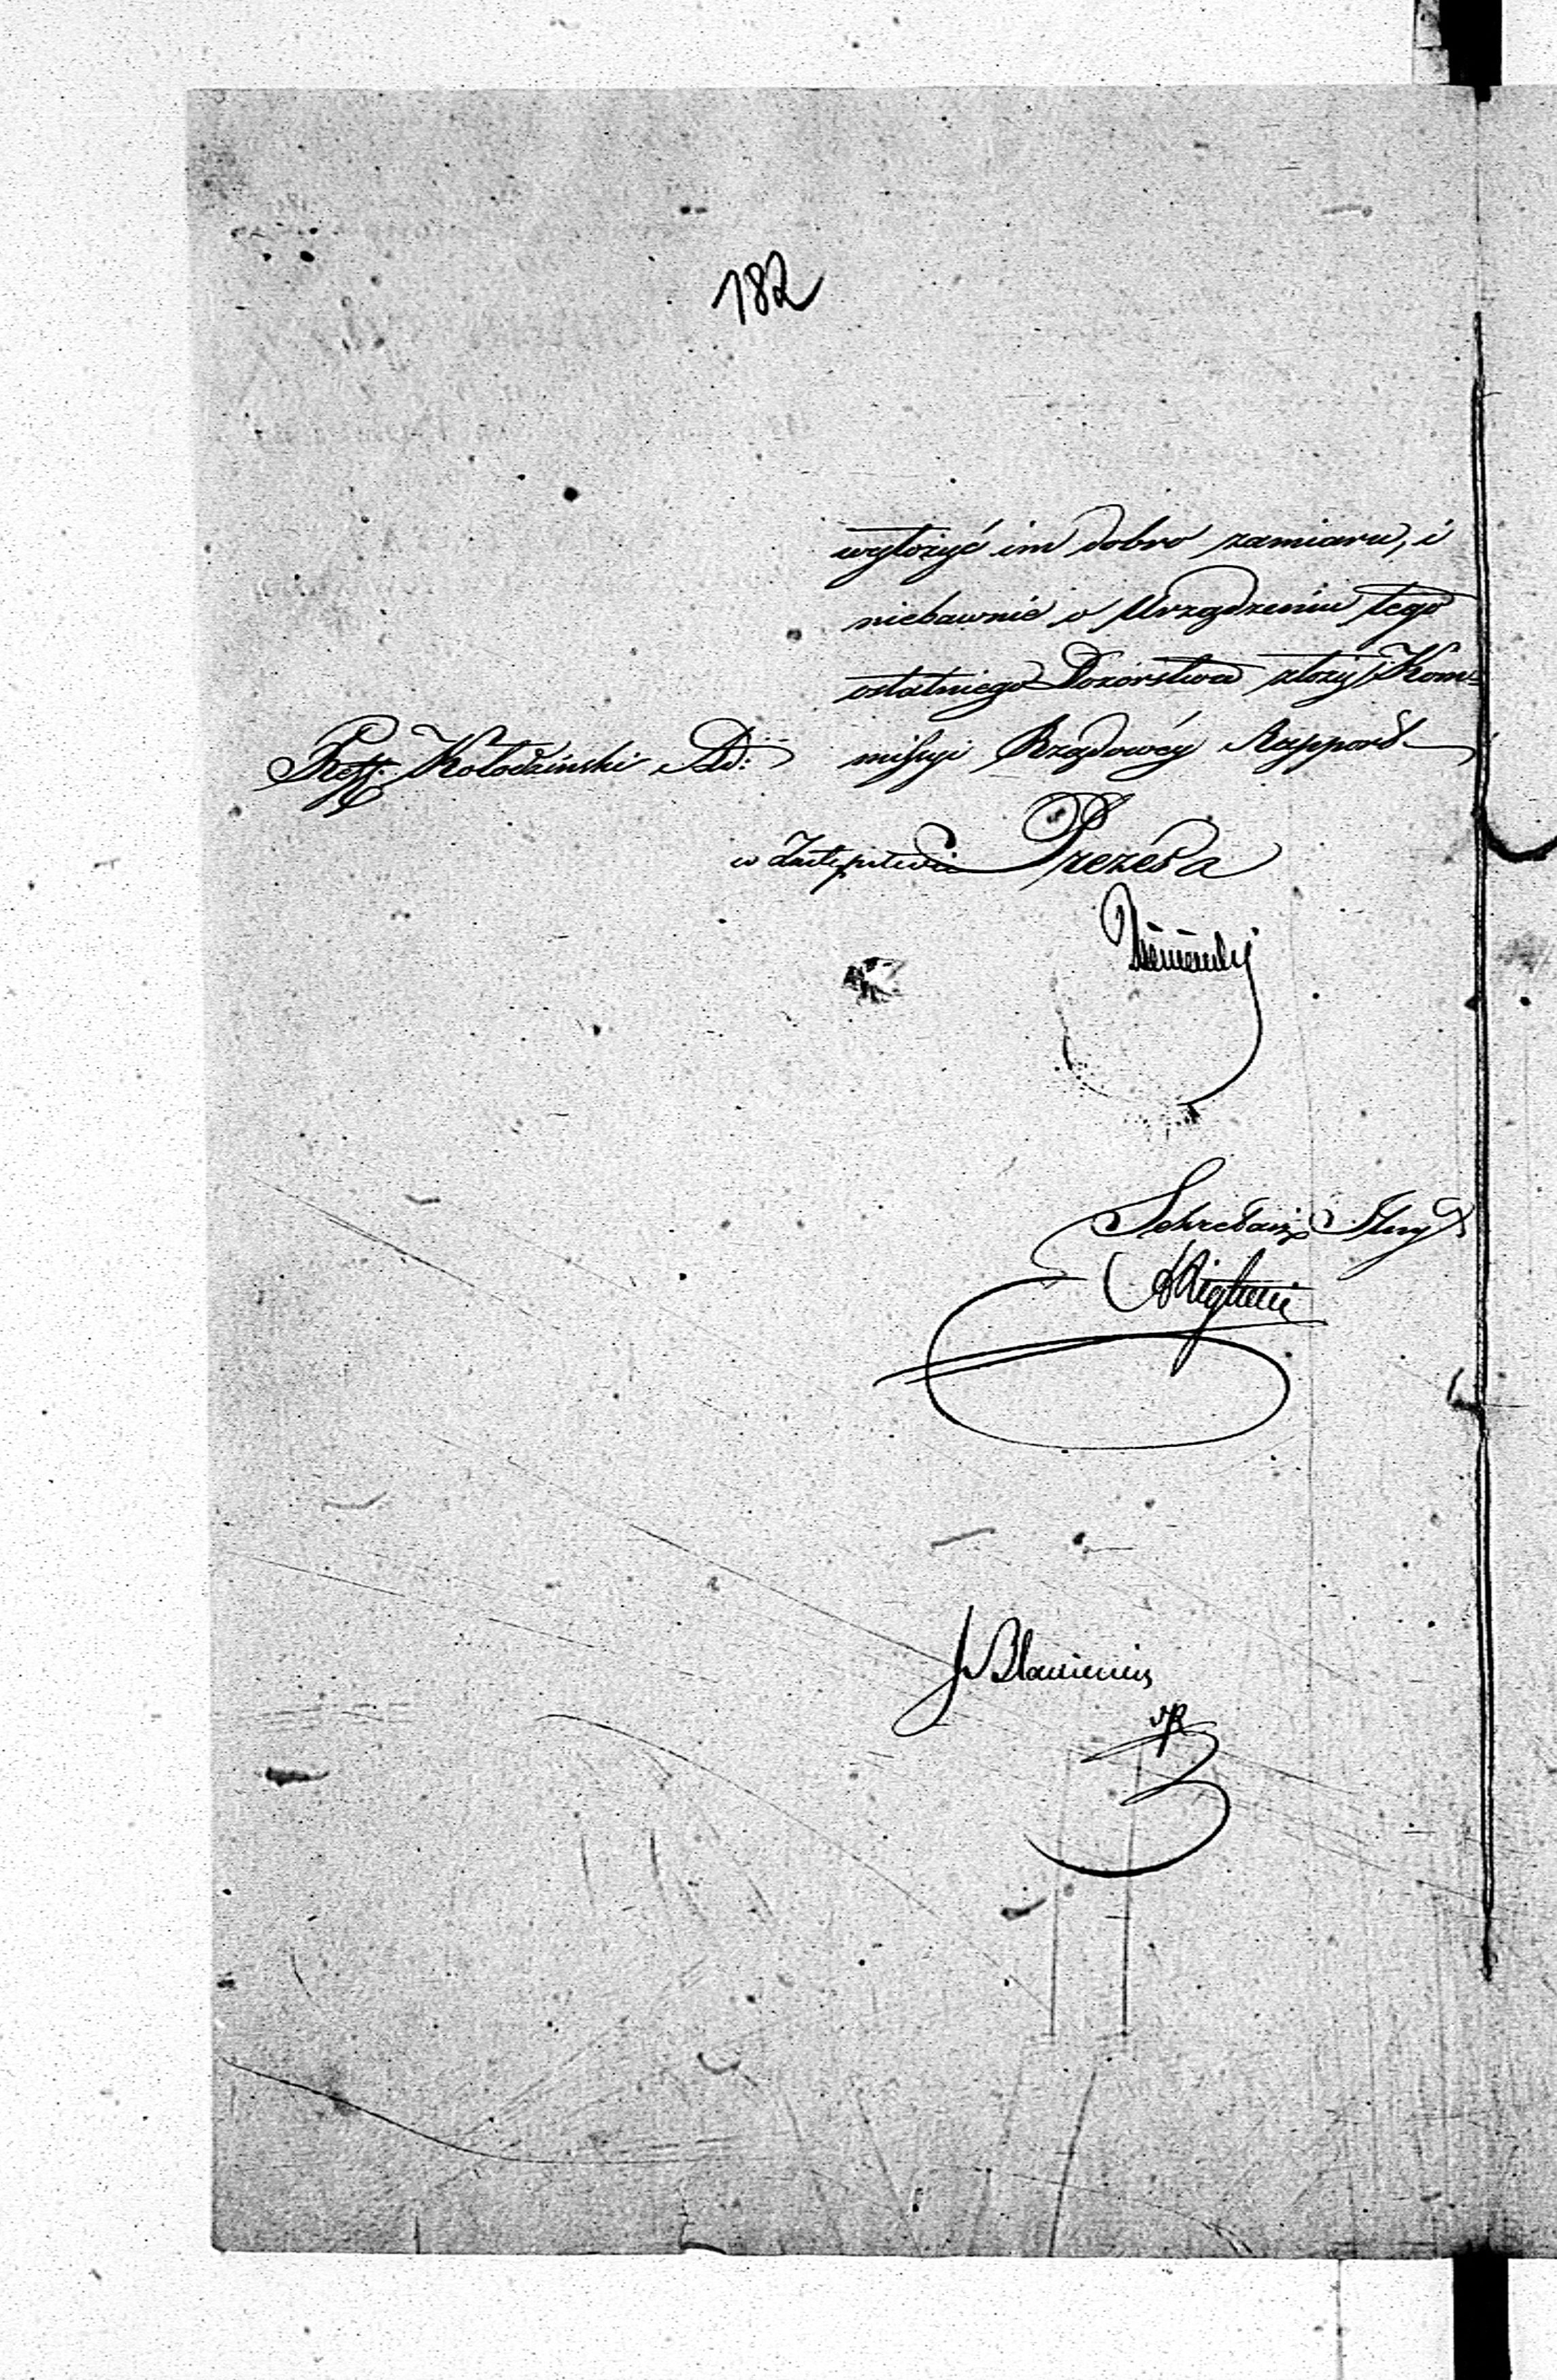 182
wyłożyć im dobro zamiaru, i
niebawnie o Urządzeniu tego
ostatniego Dozorstwa złoży Kom=
missyi Rządowéy Rapport
Reff: Kołodziński Ad:
w Zastępstwie Prezesa
Sekretarz Jlny